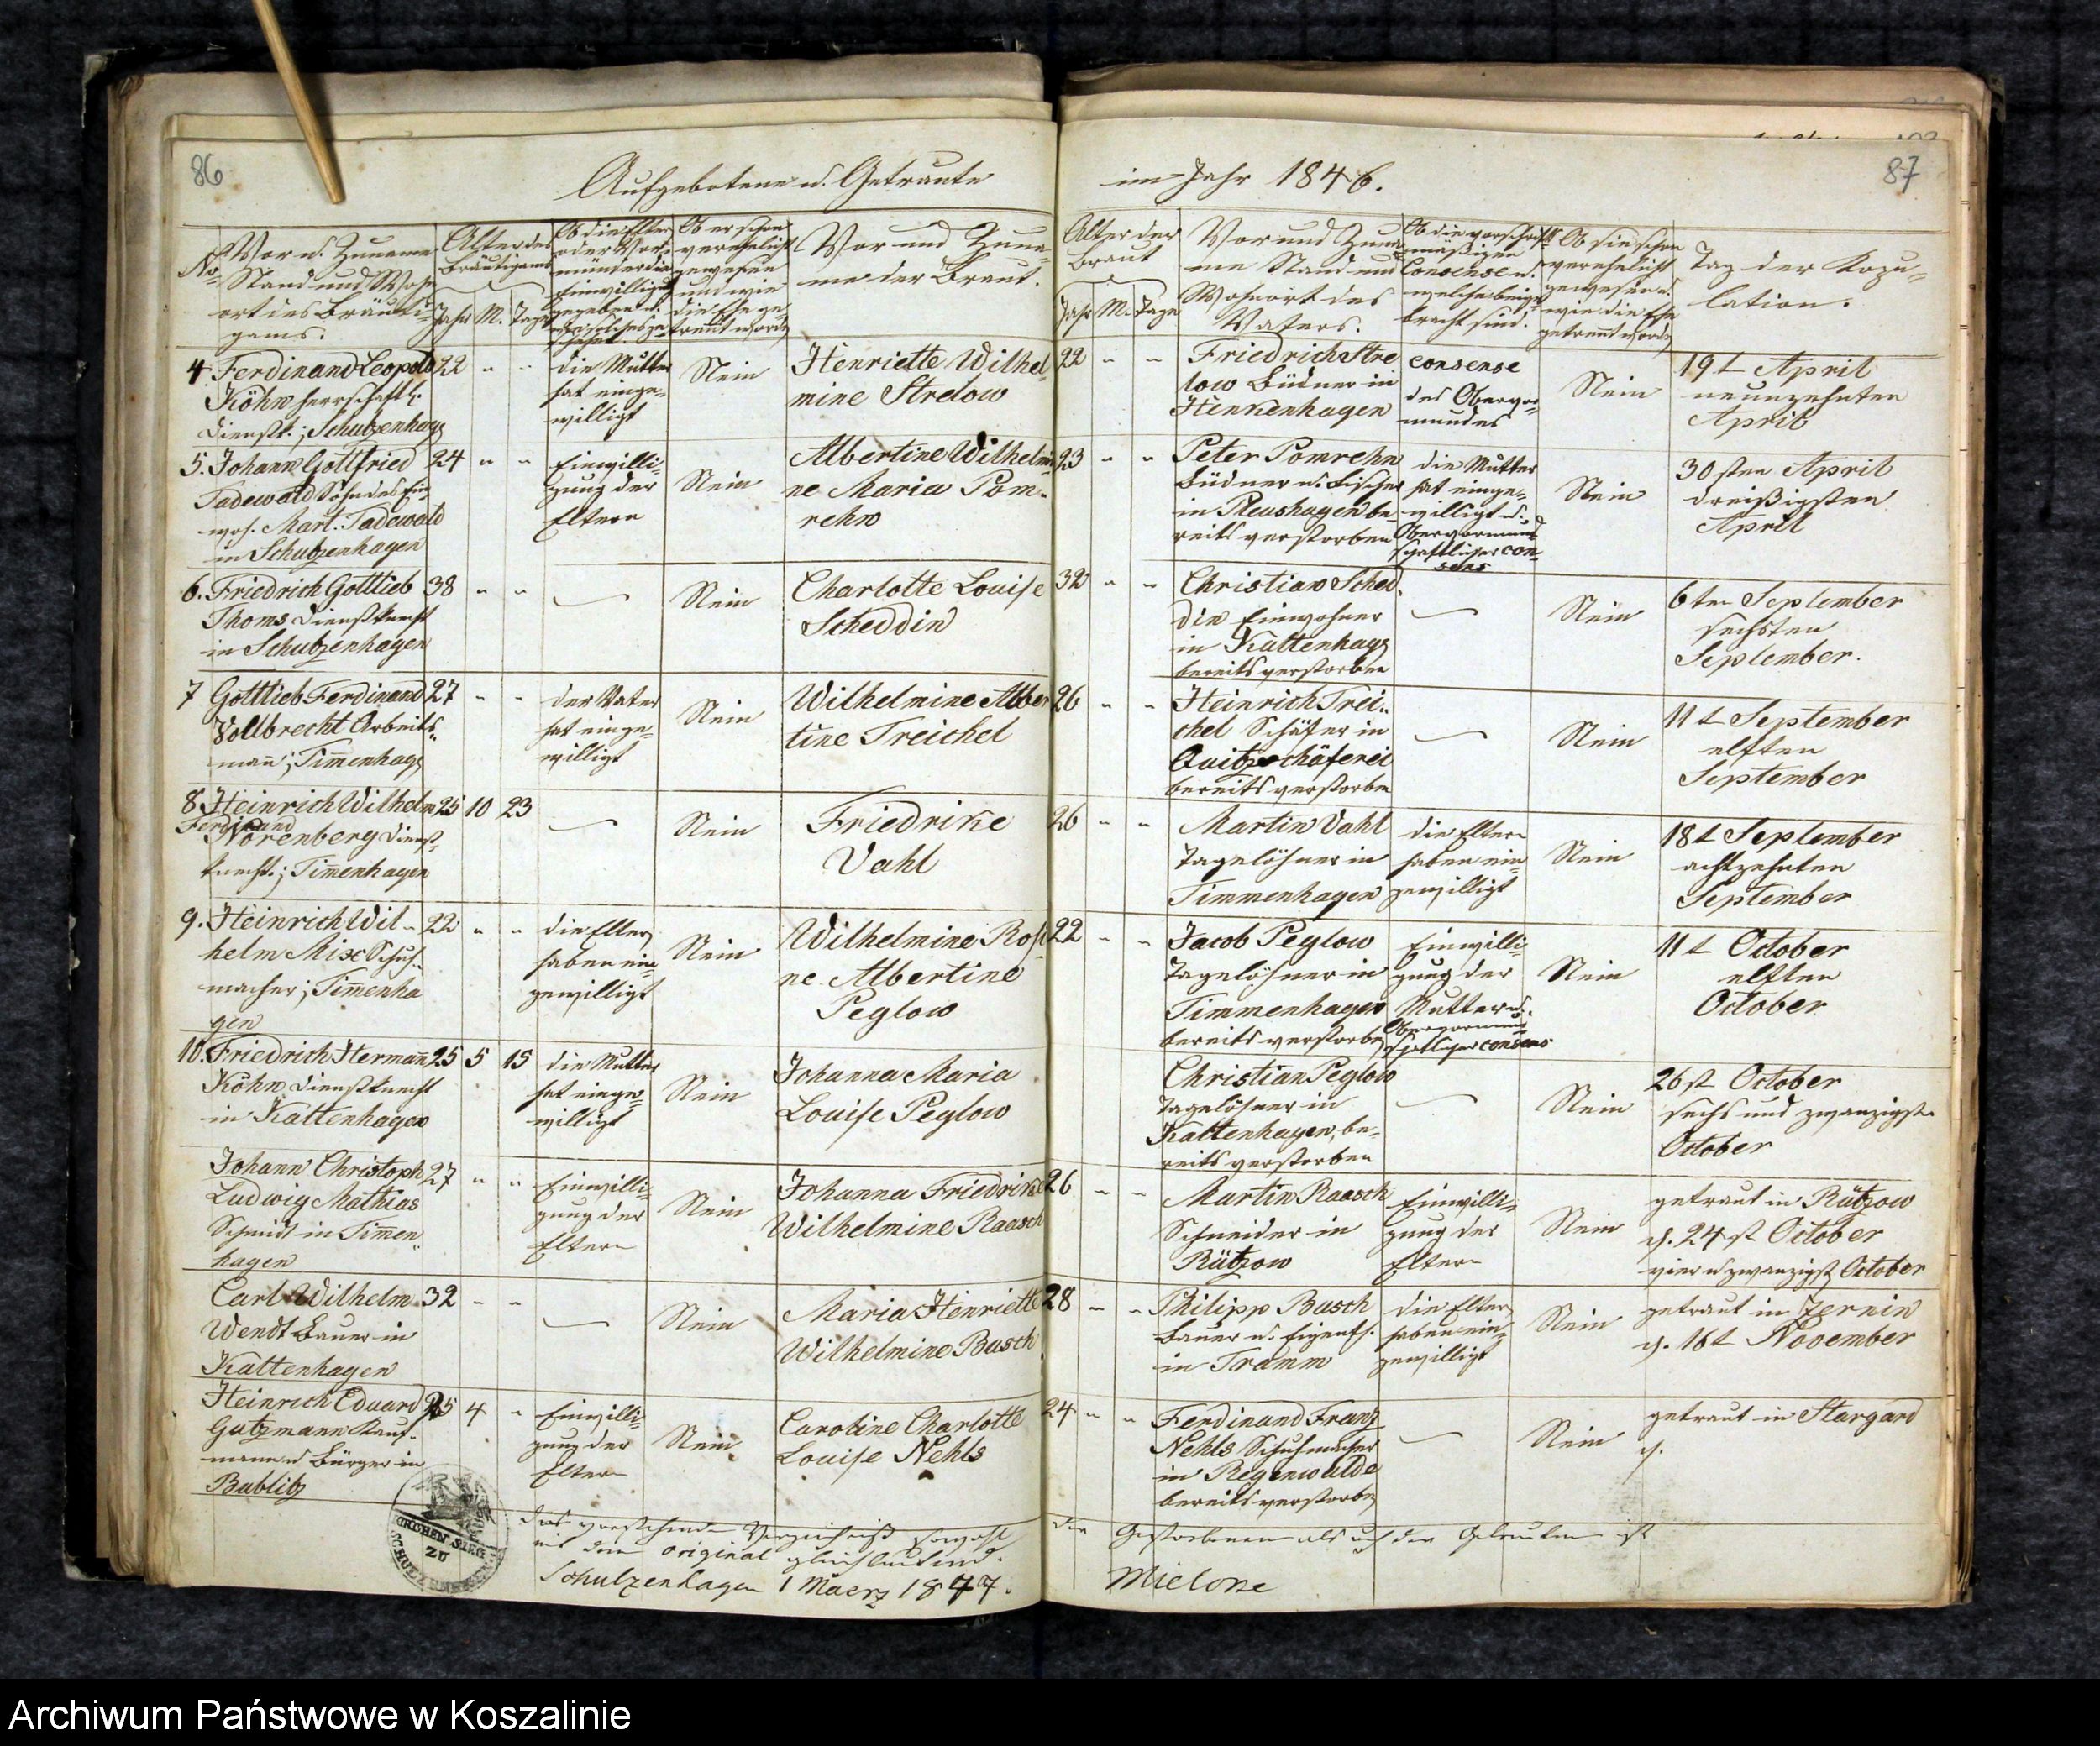 86
Aufgebotene u. Getraute
im Jahr 1846.
87
No
Vor u. Zuname
Stand und Wohn
ort des Bräuti-
gams.
Alter des
Bräutigams
Jahr M. Tage
Ob die Eltern
oder Vor-
münder die
Einwilligung
gegeben u.
wie solches ge-
schehen.
Ob er schon
verehelicht
gewesen
und wie
die Ehe ge-
trennt worden
Vor und Zuna-
me der Braut.
Alter der
Braut
Jahr M. Tage
Vor und Zuna
me Stand und
Wohnort des
Vaters.
Ob die vorschrift
mäßigen
Consense u.
welche beige
bracht sind.
Ob sie schon
verehelicht
gewesen u.
wie die Ehe
getrennt worden
Tag der Kopu-
lation.
4 Ferdinand Leopold
Köhn herrschaftl.
Dienstk. i. Schulzenhag
22 " "
die Mutter
hat einge-
willigt
Nein
Henriette Wilhel-
mine Strelow
22 " "
Friedrich Stre
low Büdner in
Henkenhagen
consense
des Obervor-
mundes
Nein
19t April
neunzehnten
April
5. Johann Gottfried
Tadewald Sohn des Ein
woh. Mart. Tadewald
in Schulzenhagen
24 " "
Einwilli-
gung der
Eltern
Nein
Albertine Wilhelmi
ne Maria Pom-
rehn
23 " "
Peter Pomrehn
Büdner u. Fischer
in Pleushagen be-
reits verstorben
die Mutter
hat einge-
willigt u.
Obervormund
schaftlicher con-
sens
Nein
30sten April
dreißigsten
April
6. Friedrich Gottlieb
Thoms Dienstknecht
in Schulzenhagen
38 " "
Nein
Charlotte Louise
Scheddin
32 " "
Christian Sched.
din Einwohner
in Kattenhag
bereits verstorben
Nein
6ten September
sechsten
September.
7 Gottlieb Ferdinand
Vollbrecht Arbeits-
mann i. Timenhag
27 " "
der Vater
hat einge-
willigt
Nein
Wilhelmine Alber
tine Treichel
26 " "
Heinrich Trei-
chel Schäfer in
Quitzschäferei
bereits verstorben
Nein
11t September
elften
September
8 Heinrich Wilhelm
Ferdinand
Nörenberg Dienst-
knecht. i. Timenhagen
25 10 23
Nein
Friedrike
Vahl
26 " "
Martin Vahl
Tagelöhner in
Timmenhagen
die Eltern
haben ein
gewilligt
Nein
18t September
achtzehnten
September
9. Heinrich Wil-
helm Mix Schuh-
macher i. Timenha
gen
22 " "
die Eltern
haben ein-
gewilligt
Nein
Wilhelmine Rosi
ne Albertine
Peglow
22 " "
Jacob Peglow
Tagelöhner in
Timmenhagen
bereits verstorben
Einwilli-
gung der
Mutter u.
Obervormund
schftlicher consens
Nein
11t October
elften
October
10. Friedrich Hermann
Köhn Dienstknecht
in Kattenhagen
25 5 15
die Mutter
hat einge-
willigt
Nein
Johanna Maria
Louise Peglow
Christian Peglow
Tagelöhner in
Kattenhagen, be-
reits verstorben
Nein
26st October
sechs und zwanzigsten
October
Johann Christoph
Ludwig Mathias
Schmidt in Timen
hagen
27 " "
Einwilli-
gung der
Eltern
Nein
Johanna Friedrike
Wilhelmine Raasch
26 " "
Martin Raasch
Schneider in
Rützow
Einwilli-
gung der
Eltern
Nein
getraut in Rützow
d. 24st October
vier u zwanzigst October
Carl Wilhelm
Wendt Bauer in
Kattenhagen
32 " "
Nein
Maria Henriette
Wilhelmine Busch
28 " "
Philipp Busch
Bauer u. Eigenth.
in Tramm
die Eltern
haben ein-
gewilligt
Nein
getraut in Zernin
d. 16t November
Heinrich Eduard
Gutzmann Kauf-
mann u Bürger in
Bublitz
25 4 "
Einwilli-
gung der
Eltern
Nein
Caroline Charlotte
Louise Nehls
24 " "
Ferdinand Franz
Nehls Schuhmacher
in Regenwalde
bereits verstorben
Nein
getraut in Stargard
d.
KIRCHEN SIEG
ZU
Das vorstehende Verzeichniß sowohl der Gestorbenen als auch der Getrauten ist
mit dem Original gleichlautend.
Schulzenhagen 1 Maerz 1847.
Mielcke
Archiwum Państwowe w Koszalinie